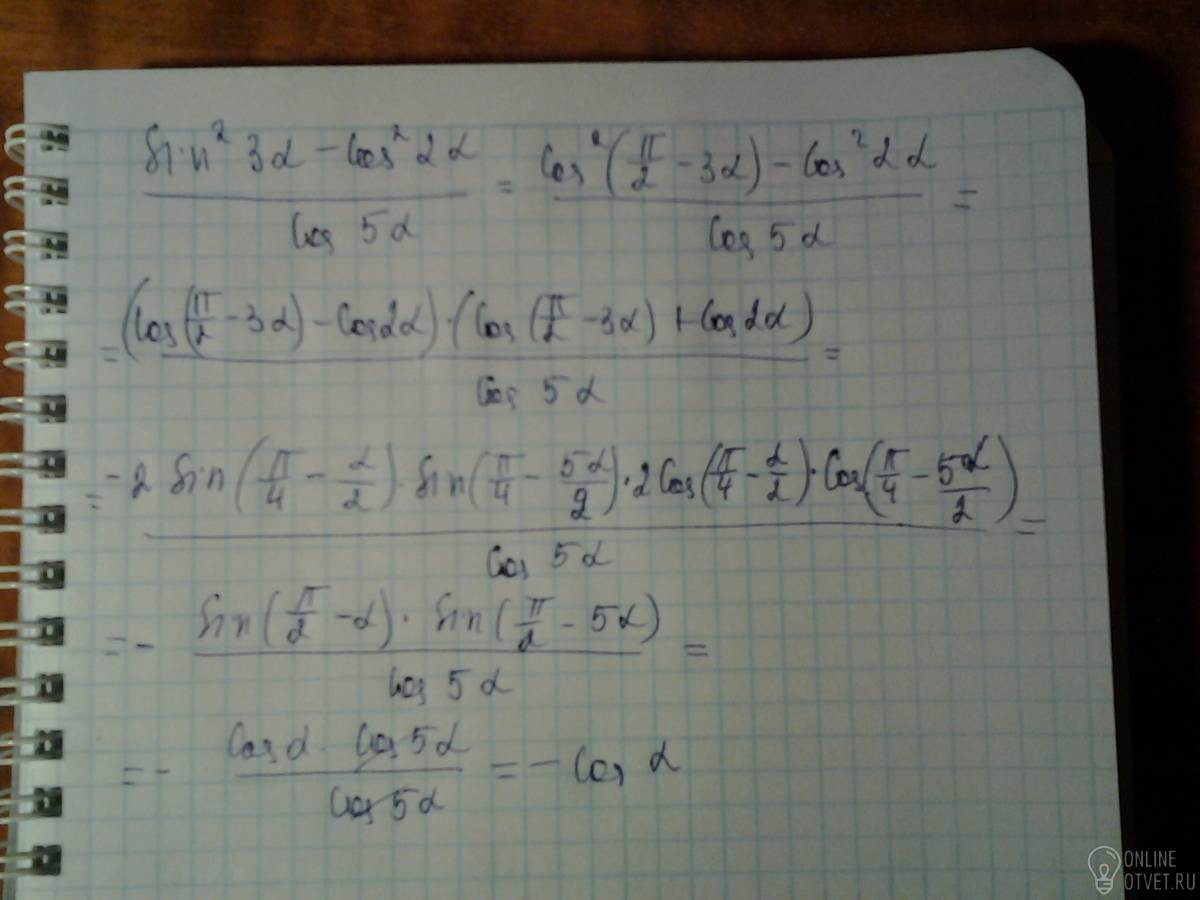 (sin² 3α − cos² 2α) / cos 5α = (cos² (π/2 − 3α) − cos² 2α) / cos 5α =
= ((cos (π/2 − 3α) − cos 2α) · (cos (π/2 − 3α) + cos 2α)) / cos 5α =
= (−2 sin (π/4 − α/2) · sin (π/4 − 5α/2) · 2 cos (π/4 − α/2) · cos (π/4 − 5α/2)) / cos 5α =
= − (sin (π/2 − α) · sin (π/2 − 5α)) / cos 5α =
= − (cos α · cos 5α) / cos 5α = − cos α
ONLINE
OTVET.RU